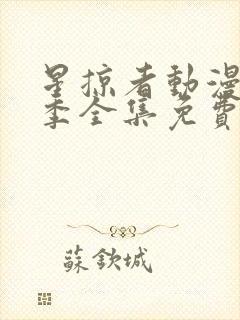 星掠者動漫
季全集免費
蘇欽城